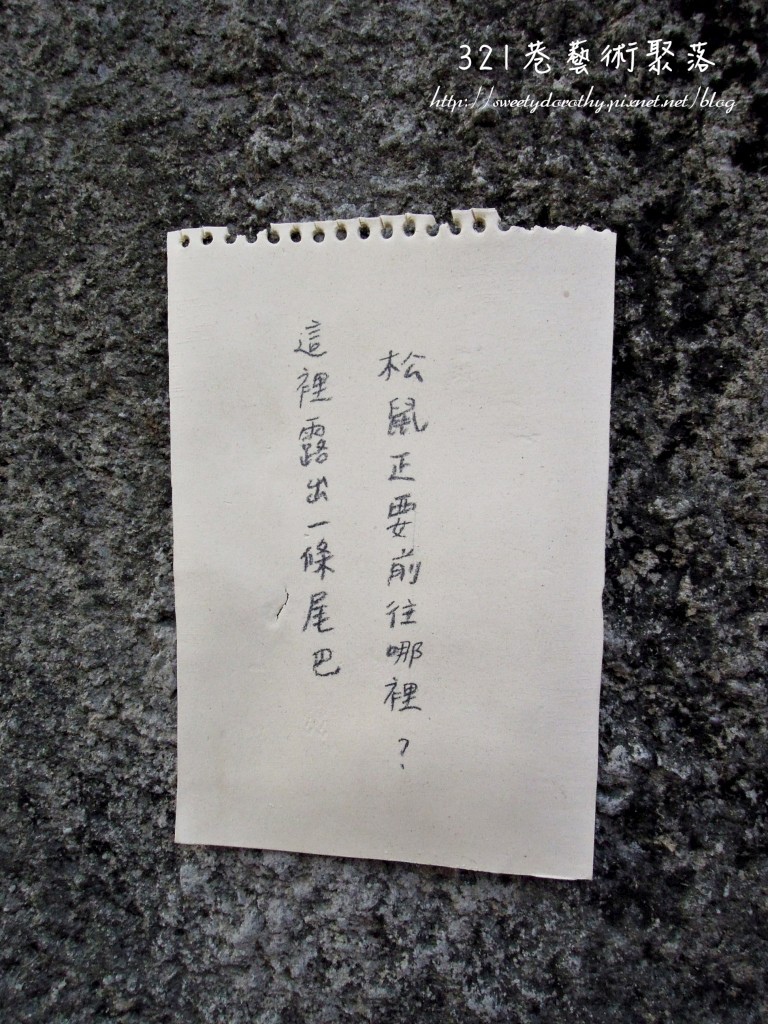 321巷藝術聚落
http://sweetydorothy.pixnet.net/blog
松鼠正要前往哪裡？
這裡露出一條尾巴